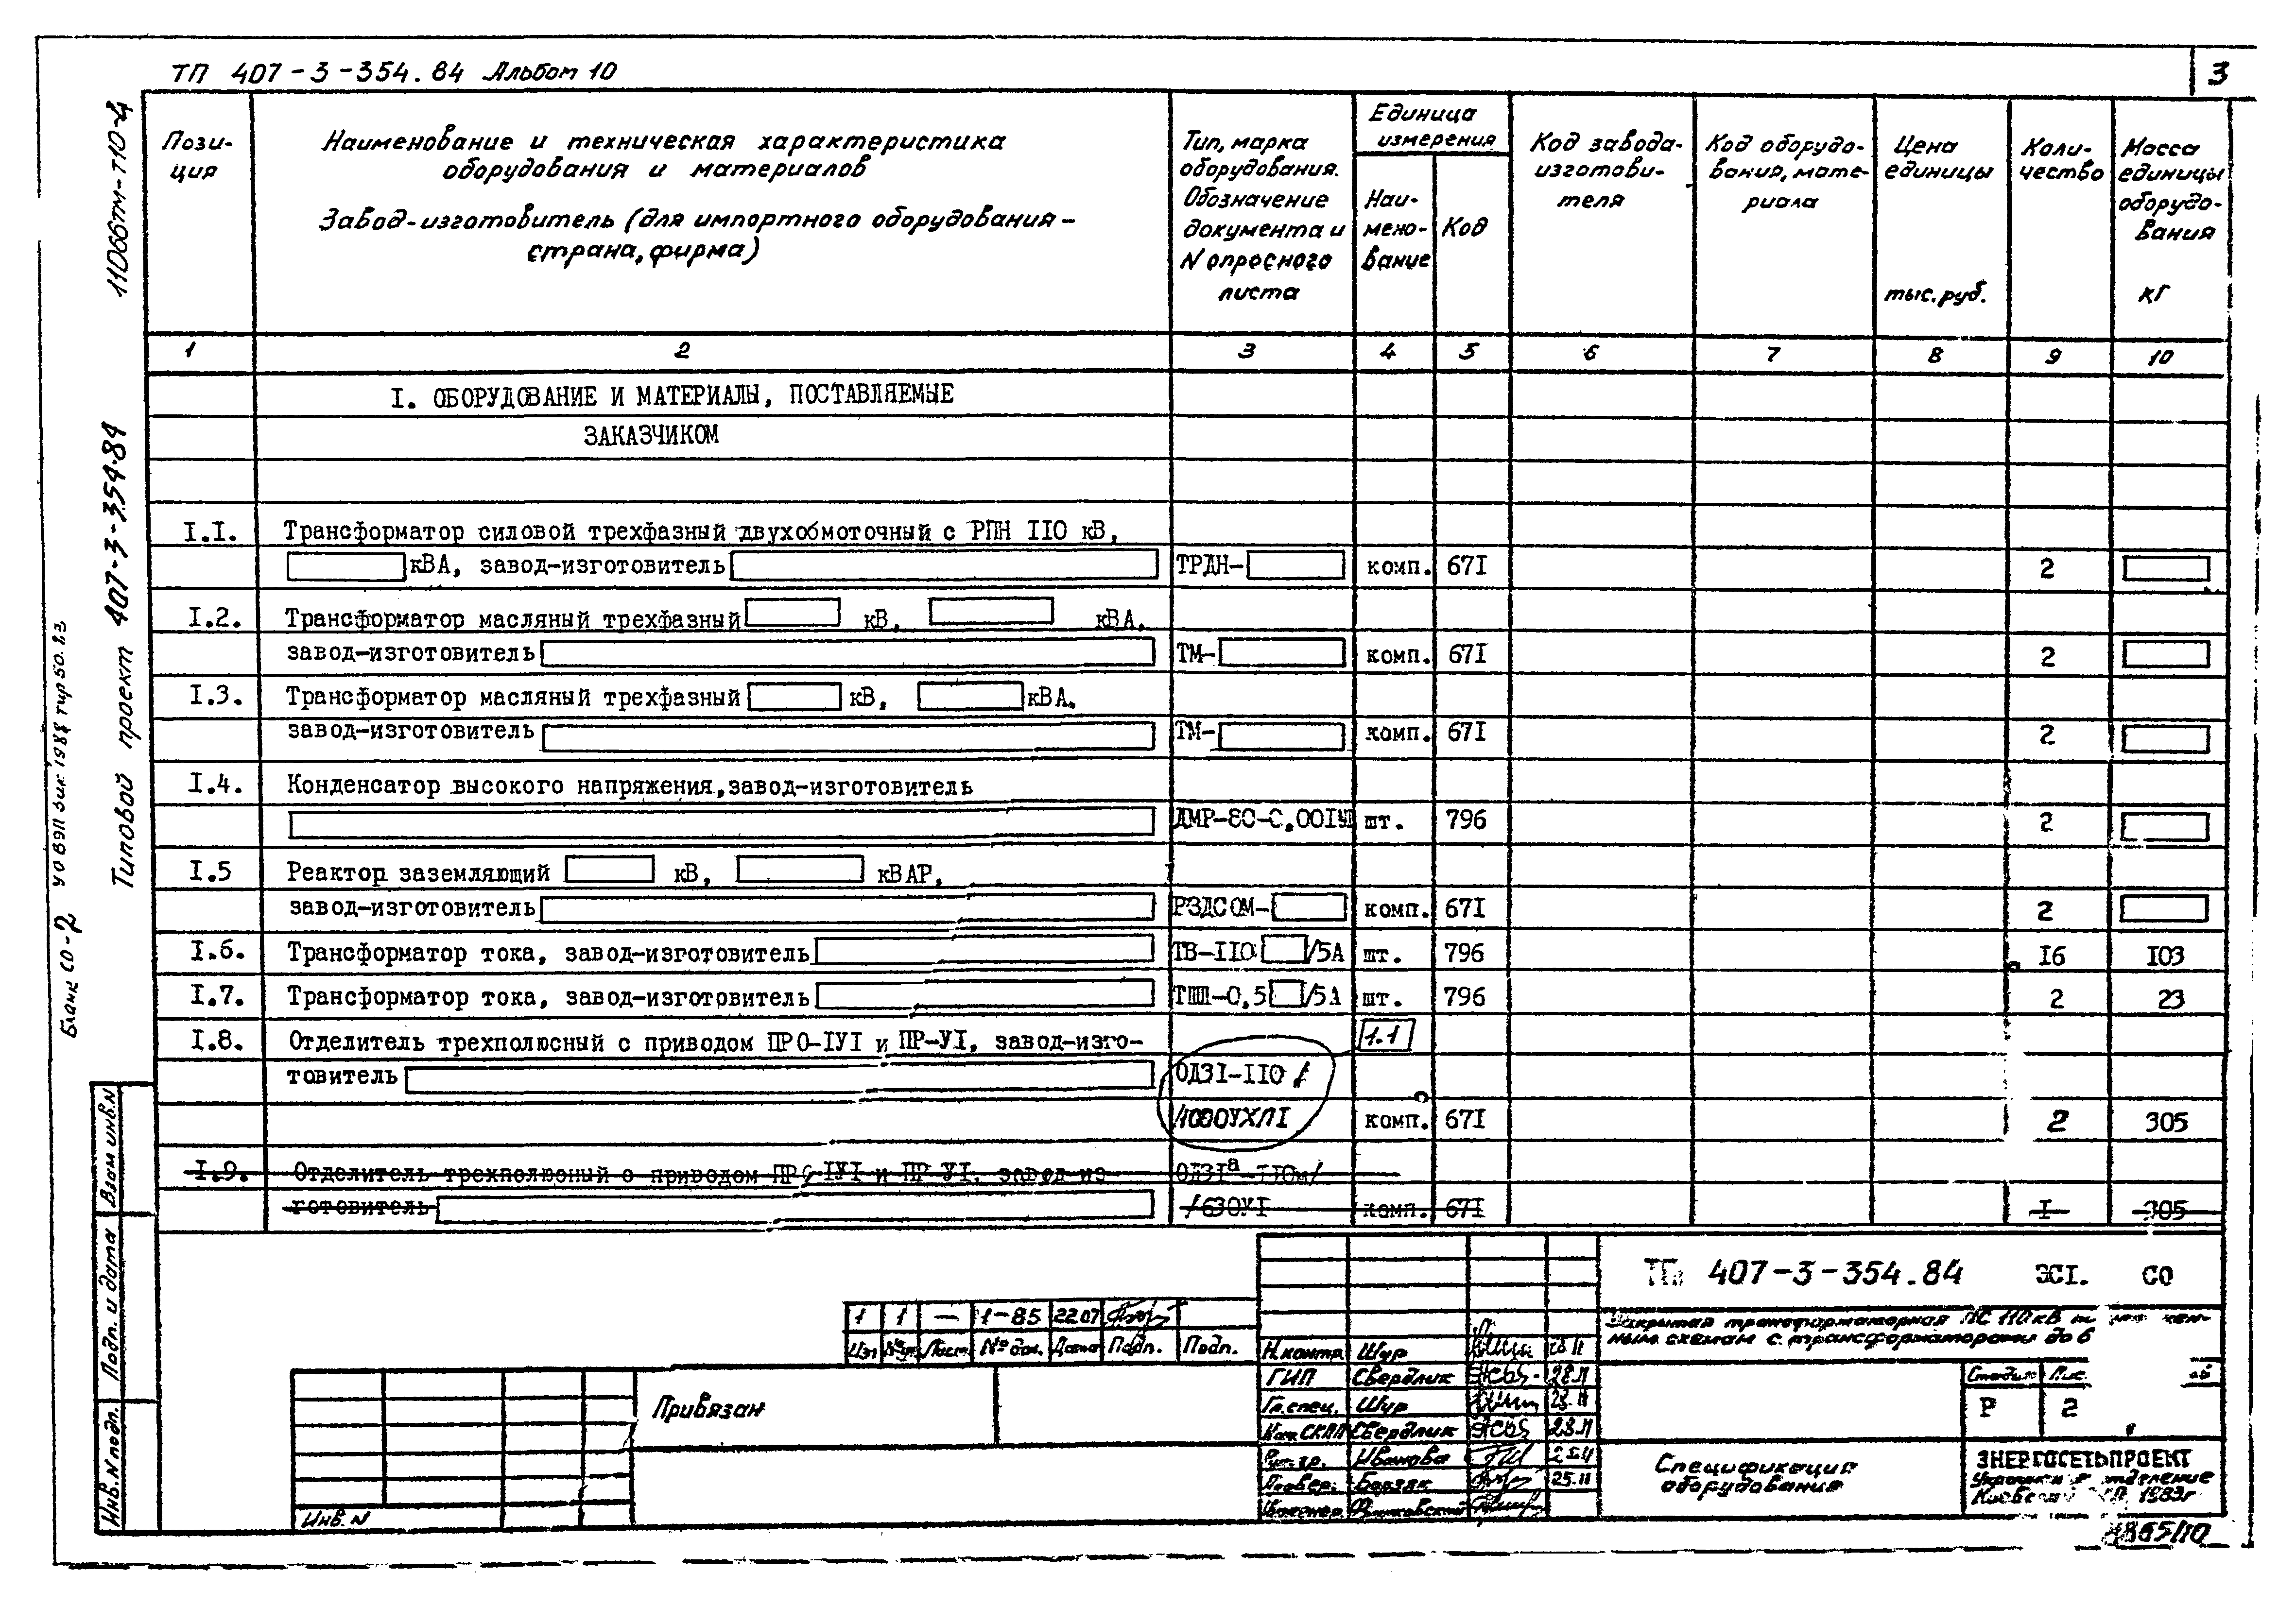 ТП 407-3-354.84 Альбом 10
3
11066тм-т10-4
Типовой проект 407-3-354.84
Бланк СО-2
Пози-
ция
Наименование и техническая характеристика
оборудования и материалов
Завод-изготовитель (для импортного оборудования -
страна, фирма)
Тип, марка
оборудования.
Обозначение
документа и
N опросного
листа
Единица
измерения
Наи-
мено-
вание
Код
Код завода-
изготови-
теля
Код оборудо-
вания, мате-
риала
Цена
единицы
тыс. руб.
Коли-
чество
Масса
единицы
оборудо-
вания
кг
1 2 3 4 5 6 7 8 9 10
I. ОБОРУДОВАНИЕ И МАТЕРИАЛЫ, ПОСТАВЛЯЕМЫЕ
ЗАКАЗЧИКОМ
I.I. Трансформатор силовой трехфазный двухобмоточный с РПН IIO кВ,
кВА, завод-изготовитель ТРДН- комп. 67I 2
I.2. Трансформатор масляный трехфазный кВ, кВА,
завод-изготовитель ТМ- комп. 67I 2
I.3. Трансформатор масляный трехфазный кВ, кВА,
завод-изготовитель ТМ- комп. 67I 2
I.4. Конденсатор высокого напряжения, завод-изготовитель
ДМР-80-0,00IУI шт. 796 2
I.5 Реактор заземляющий кВ, кВАР,
завод-изготовитель РЗДСОМ- комп. 67I 2
I.6. Трансформатор тока, завод-изготовитель ТВ-IIO /5А шт. 796 I6 IO3
I.7. Трансформатор тока, завод-изготовитель ТШП-0,5 /5А шт. 796 2 23
1.1
I.8. Отделитель трехполюсный с приводом ПРО-IУI и ПР-УI, завод-изго-
товитель ОДЗI-IIO /
/1000УХЛI комп. 67I 2 305
I.9. Отделитель трехполюсный с приводом ПРО-IУI и ПР-УI, завод-из-
ОДЗIа-IIOм/
готовитель /630УI комп. 67I I 305
Взам инв.N
Подп. и дата
Инв.N подл.
1 1 — 1-85 22.07
Изм №уч Лист №док. Дата Подп. Подп.
Привязан
Инв. N
Н.контр Шур 28.11
ГИП Свердлик 28.11
Гл.спец. Шур 28.11
Нач СКПП Свердлик 28.11
Рук.гр. Иванова 25.11
Провер. 25.11
Инженер
ТП 407-3-354.84 ЭСI. СО
Закрытая трансформаторная ПС 110кВ
ным схемам с трансформаторами до 6
Стадия Лис
Р 2
Спецификация
оборудования
ЭНЕРГОСЕТЬПРОЕКТ
отделение
1983г
865/10